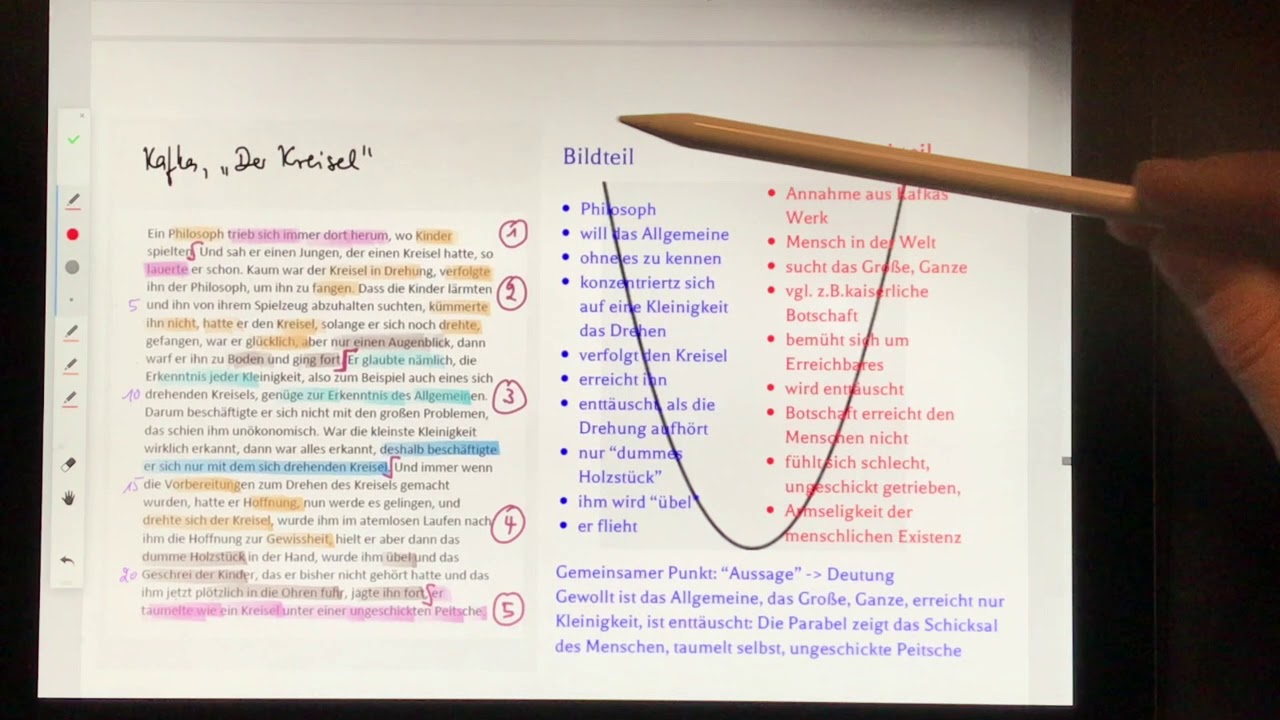 Kafka, „Der Kreisel"
Ein Philosoph trieb sich immer dort herum, wo Kinder
spielten. Und sah er einen Jungen, der einen Kreisel hatte, so
lauerte er schon. Kaum war der Kreisel in Drehung, verfolgte
ihn der Philosoph, um ihn zu fangen. Dass die Kinder lärmten
5 und ihn von ihrem Spielzeug abzuhalten suchten, kümmerte
ihn nicht, hatte er den Kreisel, solange er sich noch drehte,
gefangen, war er glücklich, aber nur einen Augenblick, dann
warf er ihn zu Boden und ging fort. Er glaubte nämlich, die
Erkenntnis jeder Kleinigkeit, also zum Beispiel auch eines sich
10 drehenden Kreisels, genüge zur Erkenntnis des Allgemeinen.
Darum beschäftigte er sich nicht mit den großen Problemen,
das schien ihm unökonomisch. War die kleinste Kleinigkeit
wirklich erkannt, dann war alles erkannt, deshalb beschäftigte
er sich nur mit dem sich drehenden Kreisel. Und immer wenn
15 die Vorbereitungen zum Drehen des Kreisels gemacht
wurden, hatte er Hoffnung, nun werde es gelingen, und
drehte sich der Kreisel, wurde ihm im atemlosen Laufen nach
ihm die Hoffnung zur Gewissheit, hielt er aber dann das
dumme Holzstück in der Hand, wurde ihm übel und das
20 Geschrei der Kinder, das er bisher nicht gehört hatte und das
ihm jetzt plötzlich in die Ohren fuhr, jagte ihn fort, er
taumelte wie ein Kreisel unter einer ungeschickten Peitsche.
1
2
3
4
5
Bildteil
• Philosoph
• will das Allgemeine
• ohne es zu kennen
• konzentriertz sich
auf eine Kleinigkeit
das Drehen
• verfolgt den Kreisel
• erreicht ihn
• enttäuscht, als die
Drehung aufhört
• nur “dummes
Holzstück”
• ihm wird “übel”
• er flieht
• Annahme aus Kafkas
Werk
• Mensch in der Welt
• sucht das Große, Ganze
• vgl. z.B.kaiserliche
Botschaft
• bemüht sich um
Erreichbares
• wird enttäuscht
• Botschaft erreicht den
Menschen nicht
• fühlt sich schlecht,
ungeschickt getrieben,
• Armseligkeit der
menschlichen Existenz
Gemeinsamer Punkt: “Aussage” -> Deutung
Gewollt ist das Allgemeine, das Große, Ganze, erreicht nur
Kleinigkeit, ist enttäuscht: Die Parabel zeigt das Schicksal
des Menschen, taumelt selbst, ungeschickte Peitsche